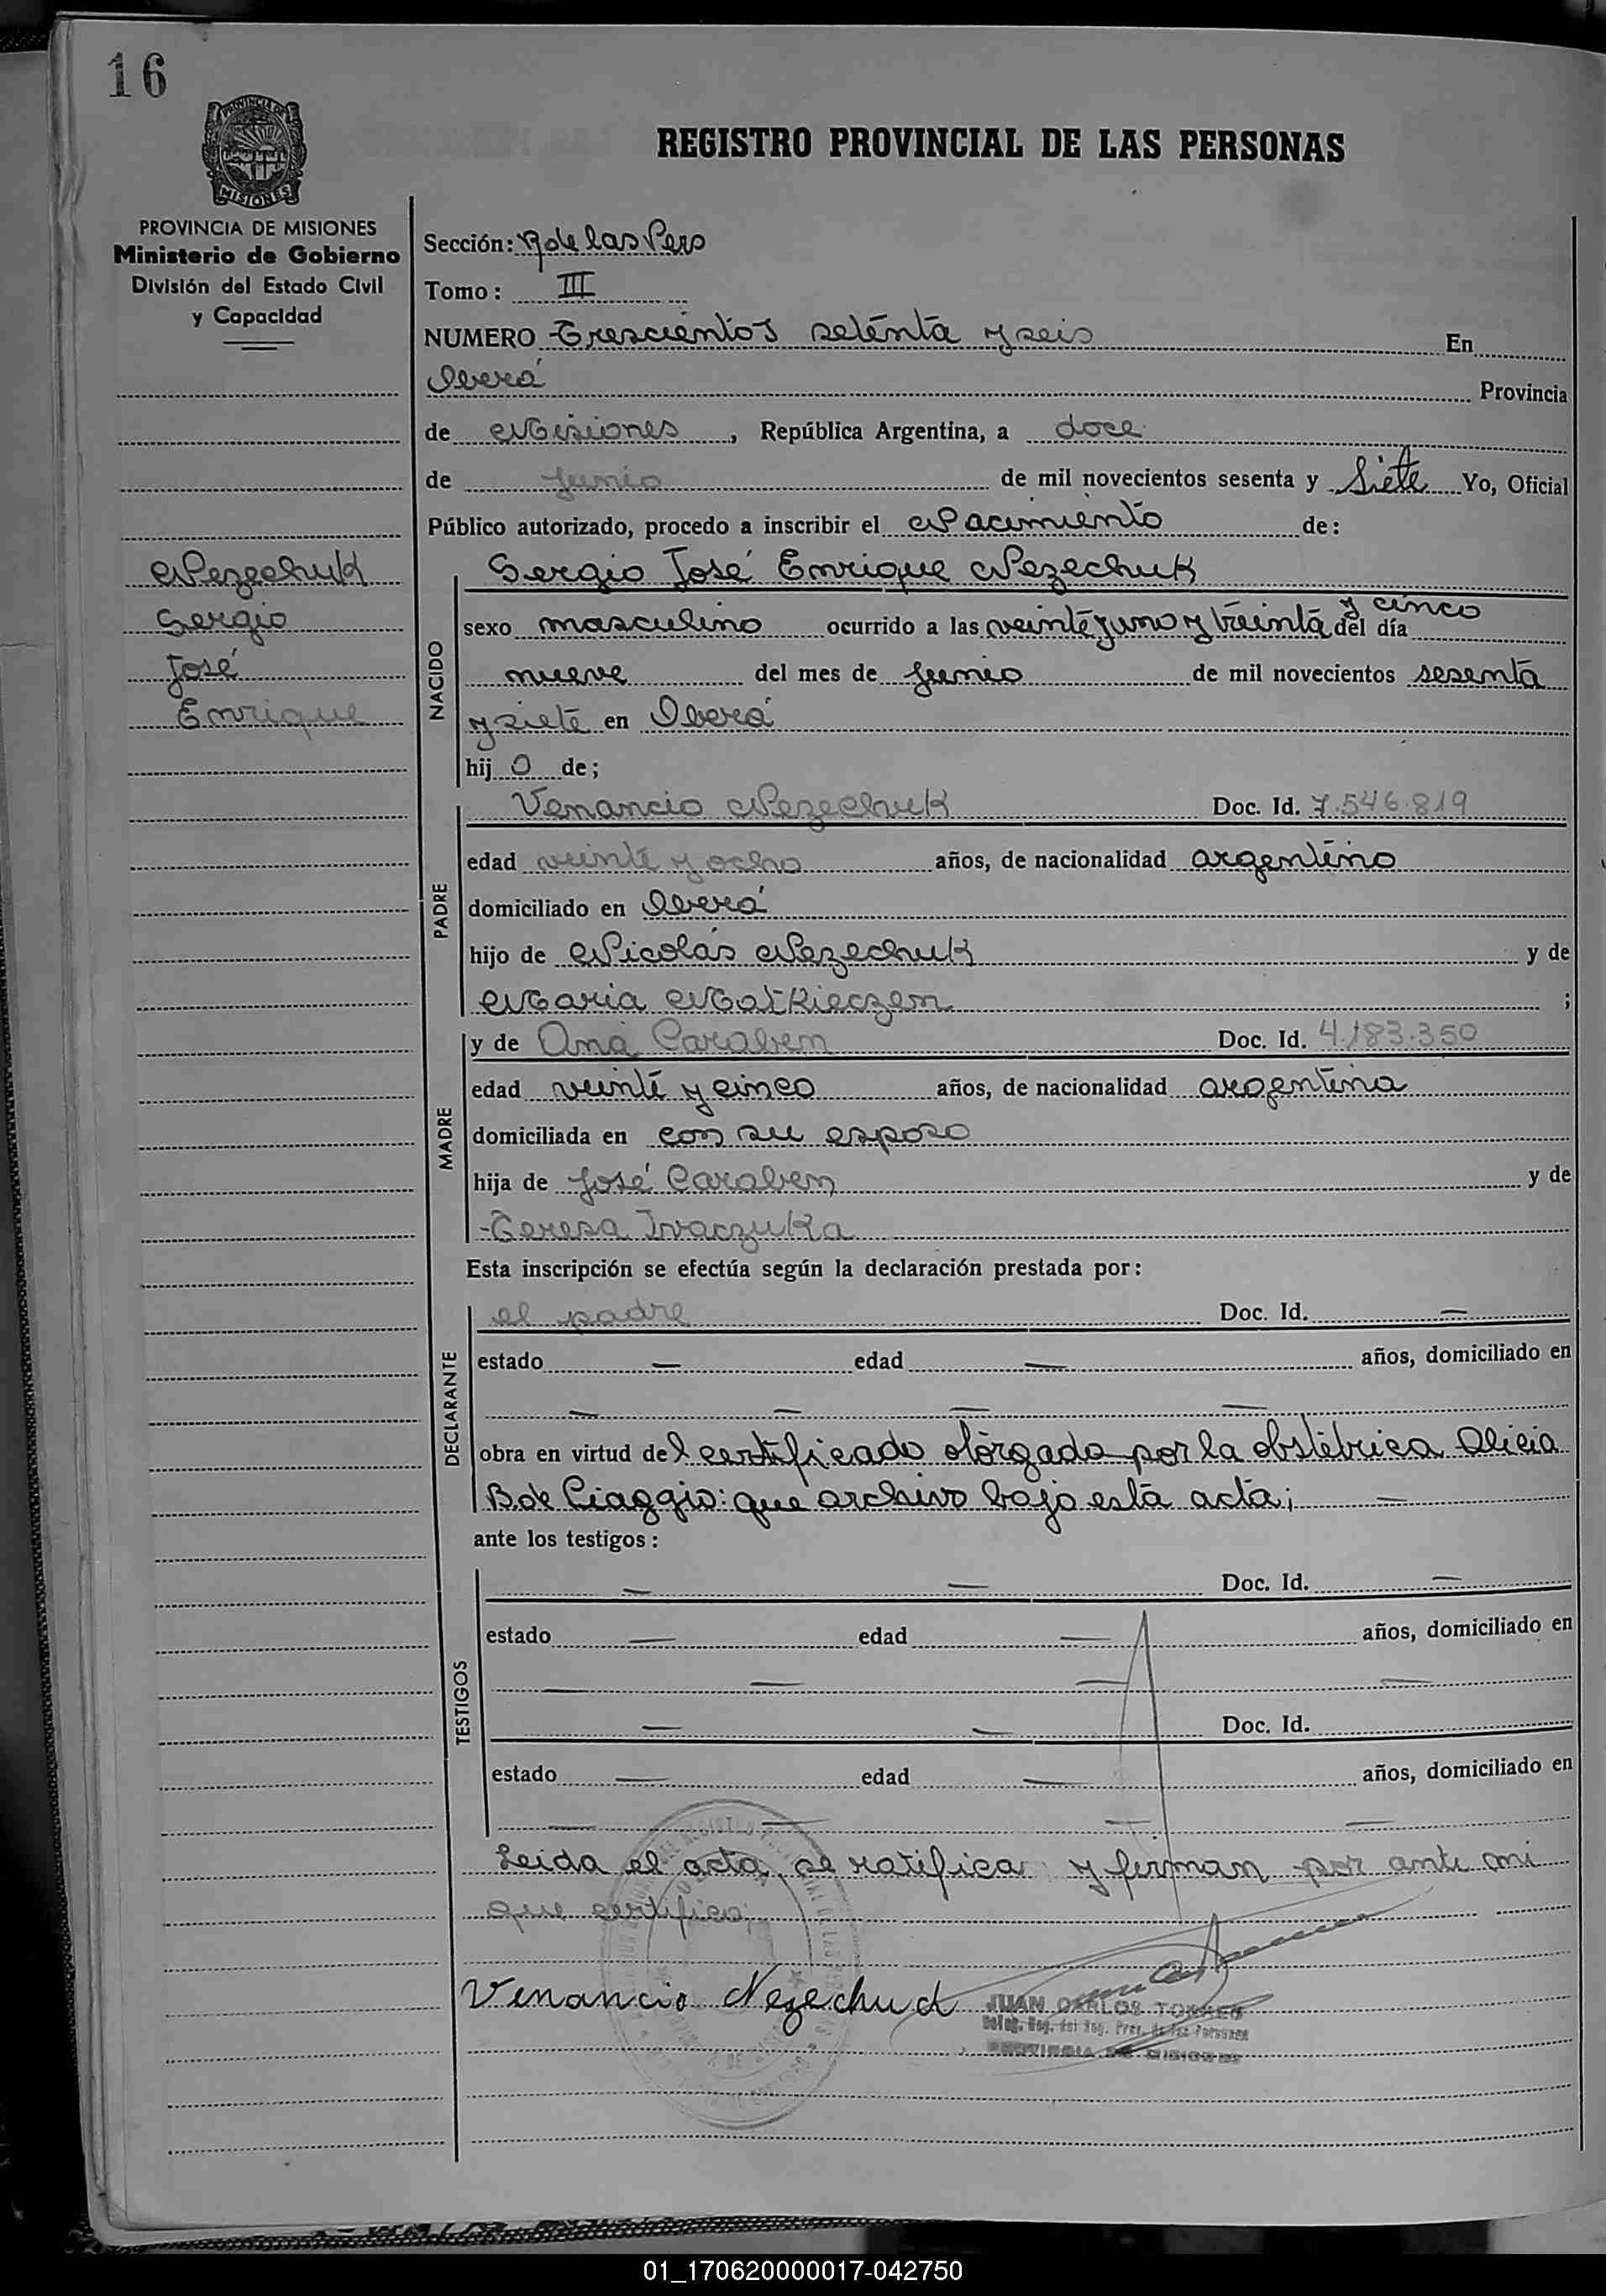 16
PROVINCIA DE MISIONES
REGISTRO PROVINCIAL DE LAS PERSONAS
PROVINCIA DE MISIONES
Ministerio de Gobierno
División del Estado Civil
y Capacidad
Nezechuk
Sergio
José
Enrique
Sección: R de las Pers
Tomo: III
NUMERO Trescientos setenta y seis En
Oberá Provincia
de Misiones, República Argentina, a doce
de Junio de mil novecientos sesenta y Siete Yo, Oficial
Público autorizado, procedo a inscribir el Nacimiento de:
NACIDO
Sergio José Enrique Nezechuk
y cinco
sexo masculino ocurrido a las veinte y uno y treinta del día
nueve del mes de Junio de mil novecientos sesenta
y siete en Oberá
hij o de;
PADRE
Venancio Nezechuk Doc. Id. 7.546.819
edad veinte y ocho años, de nacionalidad argentino
domiciliado en Oberá
hijo de Nicolás Nezechuk y de
Maria Motkieczem ;
MADRE
y de Ana Caraben Doc. Id. 4.183.350
edad veinte y cinco años, de nacionalidad argentina
domiciliada en con su esposo
hija de José Caraben y de
Teresa Ivaczuka
Esta inscripción se efectúa según la declaración prestada por:
DECLARANTE
el padre Doc. Id. —
estado — edad — años, domiciliado en
— — — —
obra en virtud del certificado otorgado por la obstétrica Alicia
B de Piaggio: que archivo bajo esta acta; —
ante los testigos:
TESTIGOS
— — Doc. Id. —
estado — edad — años, domiciliado en
— — — —
— — Doc. Id.
estado — edad — años, domiciliado en
— — — —
Leida el acta, se ratifica y firman por ante mi
que certifico;
Venancio Nezechuk
JUAN CARLOS TORRES
Deleg. Reg. del Reg. Prov. de las Personas
PROVINCIA DE MISIONES
01_170620000017-042750